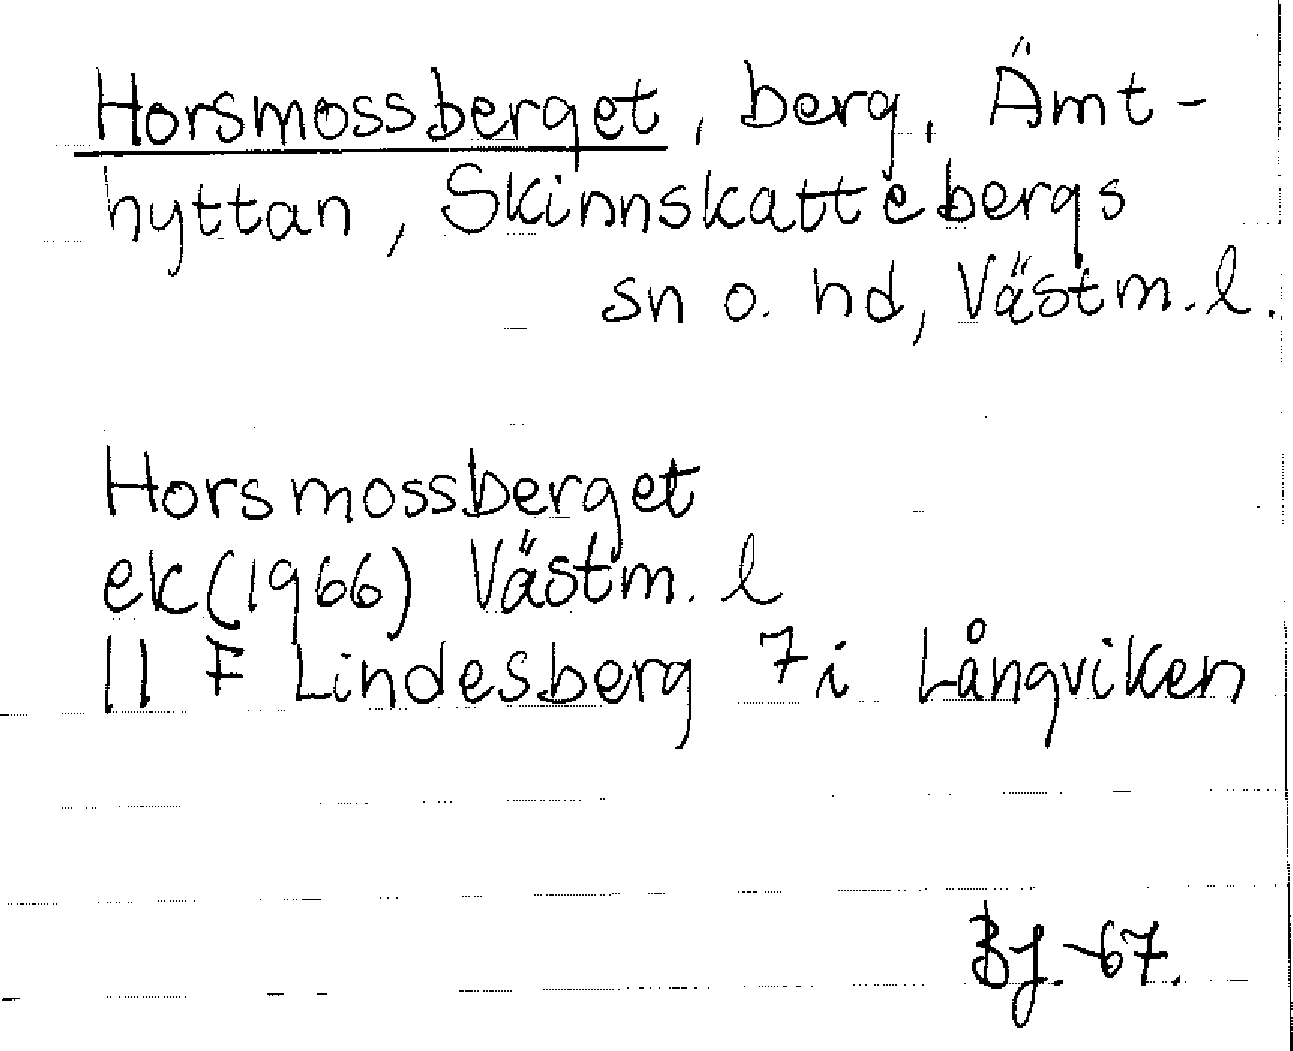 Horsmossberget, berg, Ämt-
hyttan, Skinnskattebergs
sn o. hd, Västm. l.
Horsmossberget
ek (1966) Västm. l
11 F Lindesberg 7 i Långviken
BJ. -67.